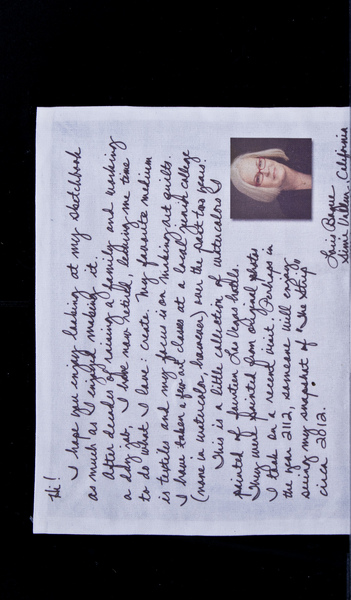 Hi!
I hope you enjoy looking at my sketchbook
as much as I enjoyed making it.
After decades of raising a family and working
a day job, I have now retired, leaving me time
to do what I love: create. My favorite medium
is textiles and my focus is on making art quilts.
I have taken a few art classes at a local junior college
(none in watercolor however) over the past two years.
This is a little collection of watercolors I
painted of fourteen Las Vegas hotels.
They were painted from original photos
I took on a recent visit. Perhaps in
the year 2112, someone will enjoy
seeing my snapshot of "The Strip"
circa 2012.
Simi Valley, California